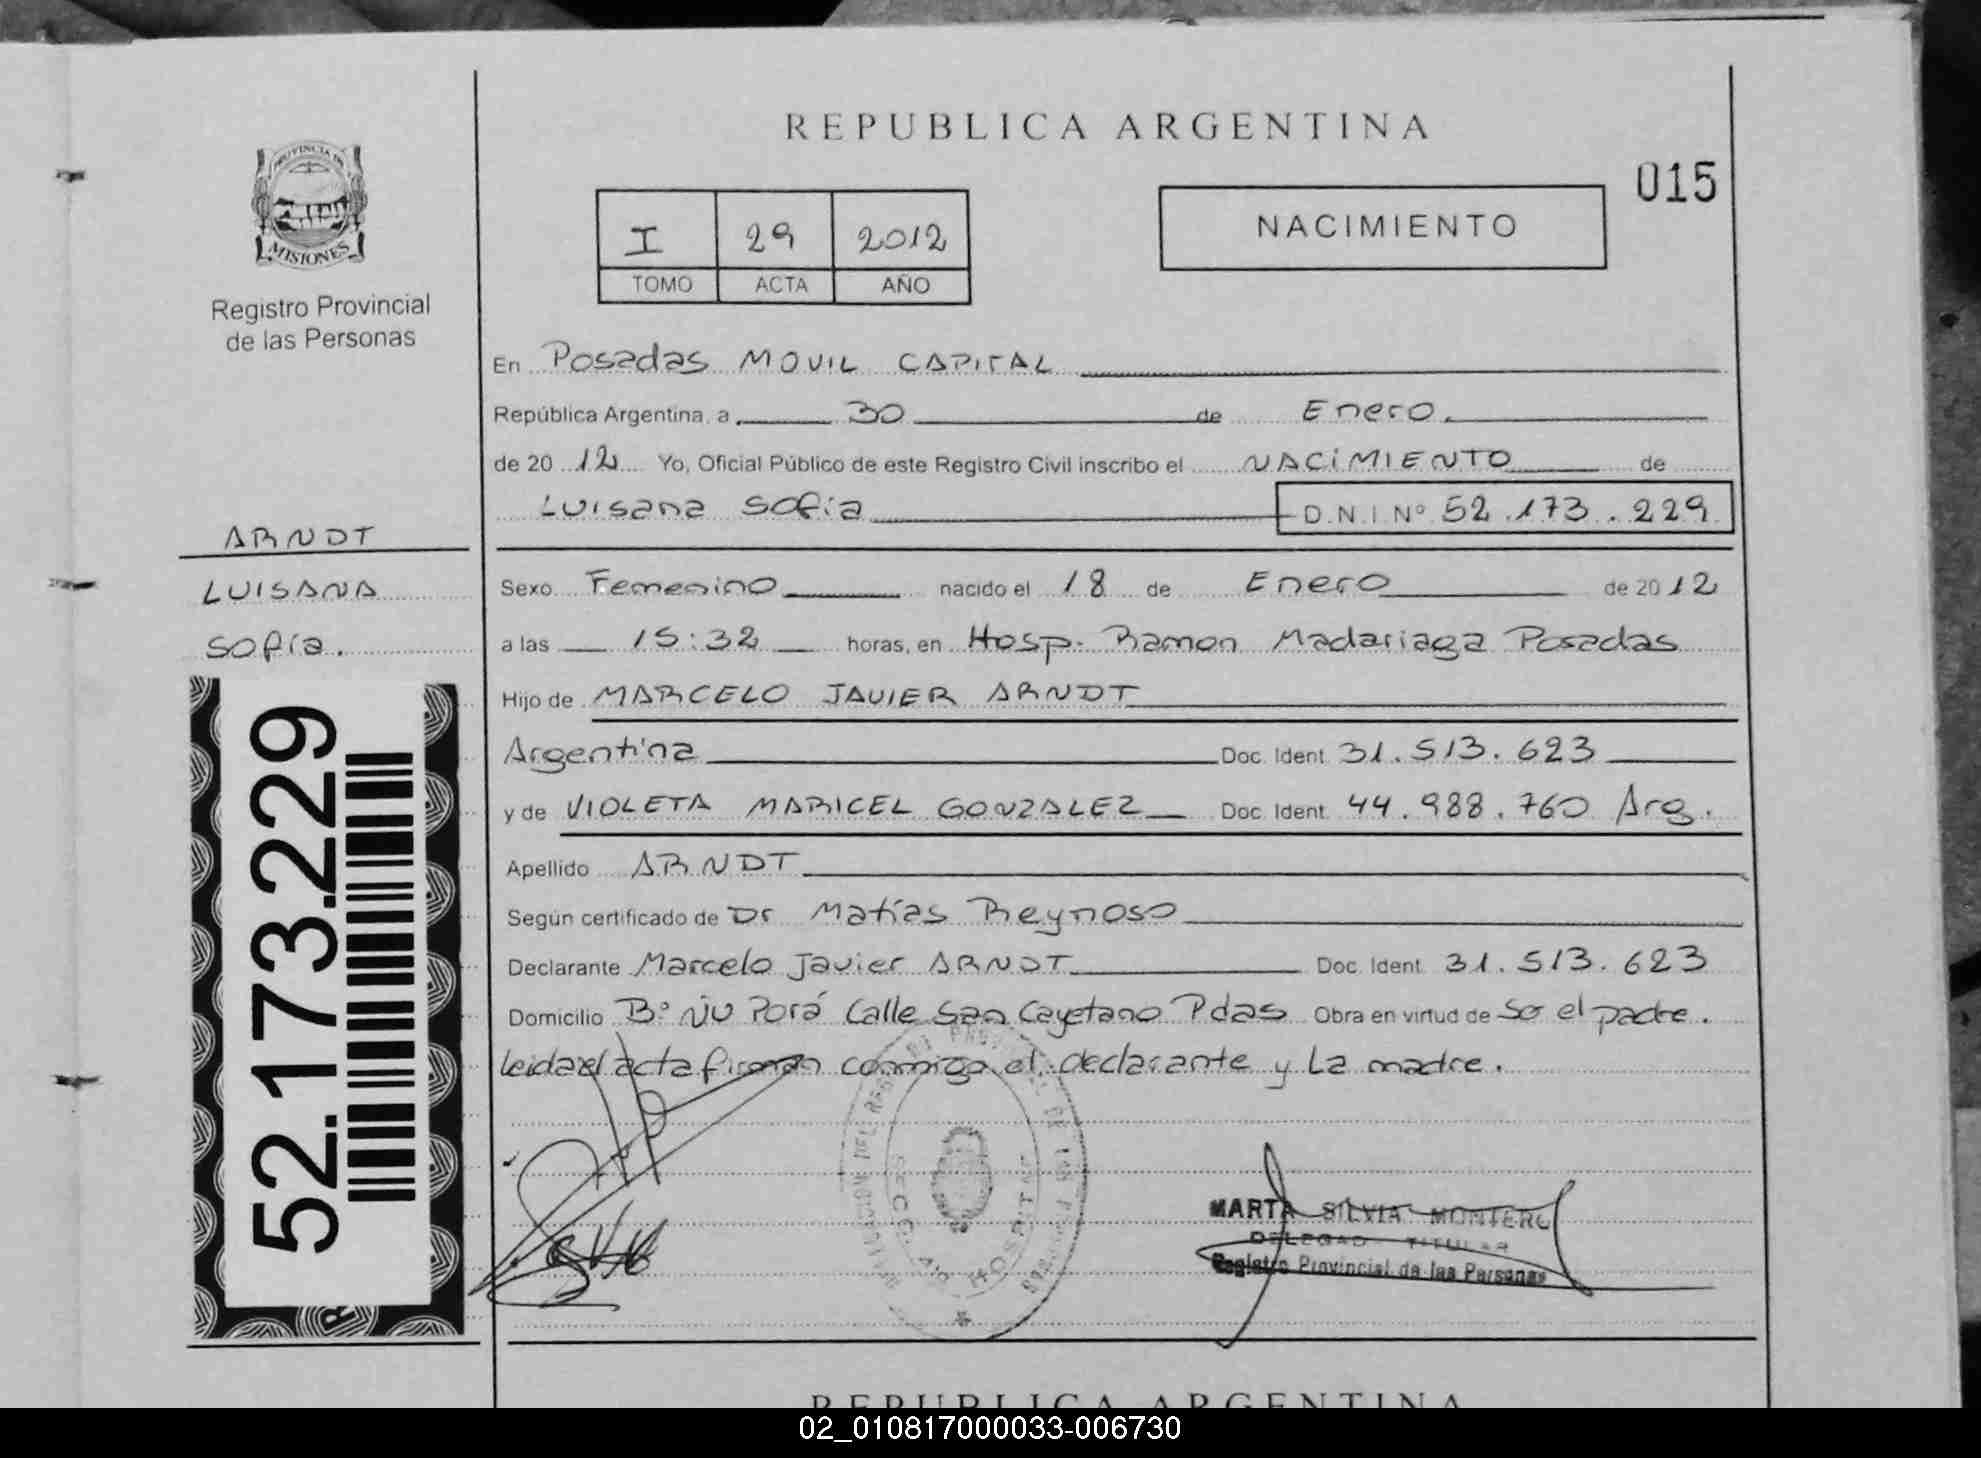 REPUBLICA ARGENTINA
015
PROVINCIA DE
MISIONES
Registro Provincial
de las Personas
I 29 2012
TOMO ACTA AÑO
NACIMIENTO
En Posadas MOVIL CAPITAL
República Argentina, a 30 de Enero.
de 20 12 Yo, Oficial Público de este Registro Civil inscribo el NACIMIENTO de
Luisana Sofía D.N.I. Nº 52.173.229
ARNDT
LUISANA
Sofía.
52.173.229
Sexo Femenino nacido el 18 de Enero de 20 12
a las 15:32 horas, en Hosp. Ramon Madariaga Posadas
Hijo de MARCELO JAVIER ARNDT
Argentina Doc. Ident. 31.513.623
y de VIOLETA MARICEL GONZALEZ Doc. Ident. 44.988.760 Arg.
Apellido ARNDT
Según certificado de Dr Matías Reynoso
Declarante Marcelo Javier ARNDT Doc. Ident. 31.513.623
Domicilio Bº Ñu Porá Calle San Cayetano Pdas Obra en virtud de Ser el padre.
leida el acta firman conmigo el declarante y La madre.
MARTA SILVIA MONTERO
DELEGADA TITULAR
Registro Provincial de las Personas
REPUBLICA ARGENTINA
02_010817000033-006730